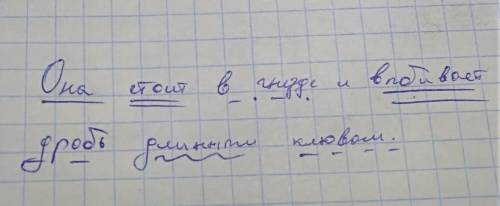 Она стоит в гнезде и впбивает
дробь длинным клювом.